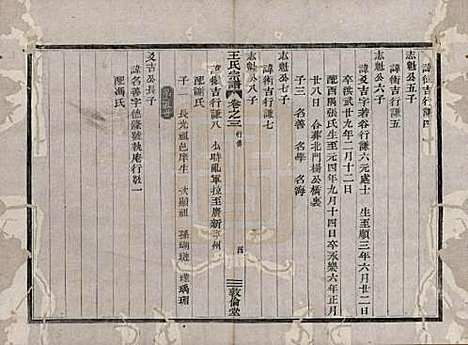 諱術吉行謙四
志魁公五子
諱衛吉行謙五
志魁公六子
諱爻吉字若谷行謙六元處士 生至順三年六月廿二日
卒洪武廿九年二月十二日
配西隅張氏生至元四年九月十四日卒永樂六年正月
廿八日 合葬北門楊公橋裏
子三 名善 名學 名海
志魁公七子
諱衝吉行謙七
志魁公八子
王氏宗譜 卷之三 行傳 四 敦倫堂
吉行謙八 元時亂軍拉至廣新
配
子二 長光祖邑庠生 次顯祖 孫瑚璉 璞瑀珊
爻吉公長子
諱名善字德隆號執庵行敬一
配馮氏